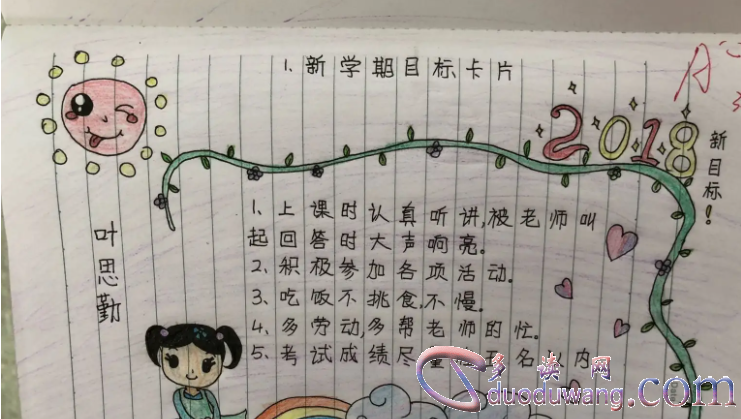 1.新学期目标卡片
A
2018
新目标!
叶思勤
1、上课时认真听讲,被老师叫
起回答时大声响亮。
2、积极参加各项活动。
3、吃饭不挑食,不慢。
4、多劳动,多帮老师的忙。
5、考试成绩尽量 名以内
多读网
duoduwang.com